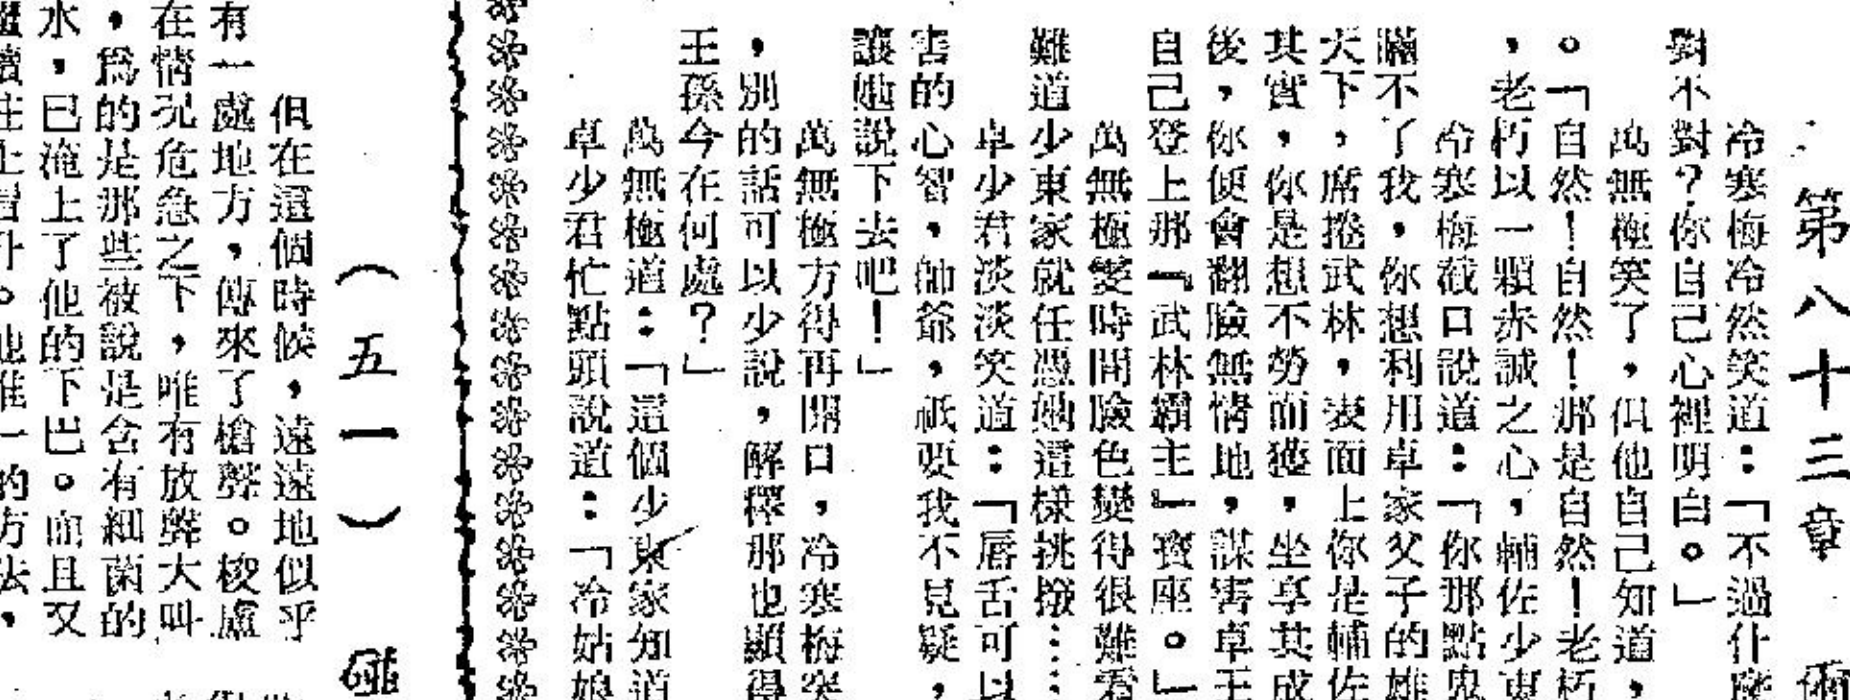 第八十三章
冷寒梅冷然笑道：「不過什麼
對不對？你自己心裡明白。」
萬無極笑了，但他自己知道，
。「自然！自然！那是自然！老朽
，老朽以一顆赤誠之心，輔佐少東
冷寒梅截口說道：「你那點鬼
瞞不了我，你想利用卓家父子的雄
天下，席捲武林，表面上你是輔佐
其實，你是想不勞而獲，坐享其成
後，你便會翻臉無情地，謀害卓王
自己登上那『武林霸主』寶座。」
萬無極霎時間臉色變得很難看
難道少東家就任憑她這樣挑撥……
卓少君淡淡笑道：「唇舌可以
害的心智，師爺，祇要我不見疑，
讓她說下去吧！」
萬無極方得再開口，冷寒梅突
，別的話可以少說，解釋那也顯得
王孫今在何處？」
萬無極道：「這個少東家知道
卓少君忙點頭說道：「冷姑娘
（五一）
但在這個時候，遠遠地似乎
有一處地方，傳來了槍聲。梭盧
在情況危急之下，唯有放聲大叫
，爲的是那些被說是含有細菌的
水，已淹上了他的下巴。而且又